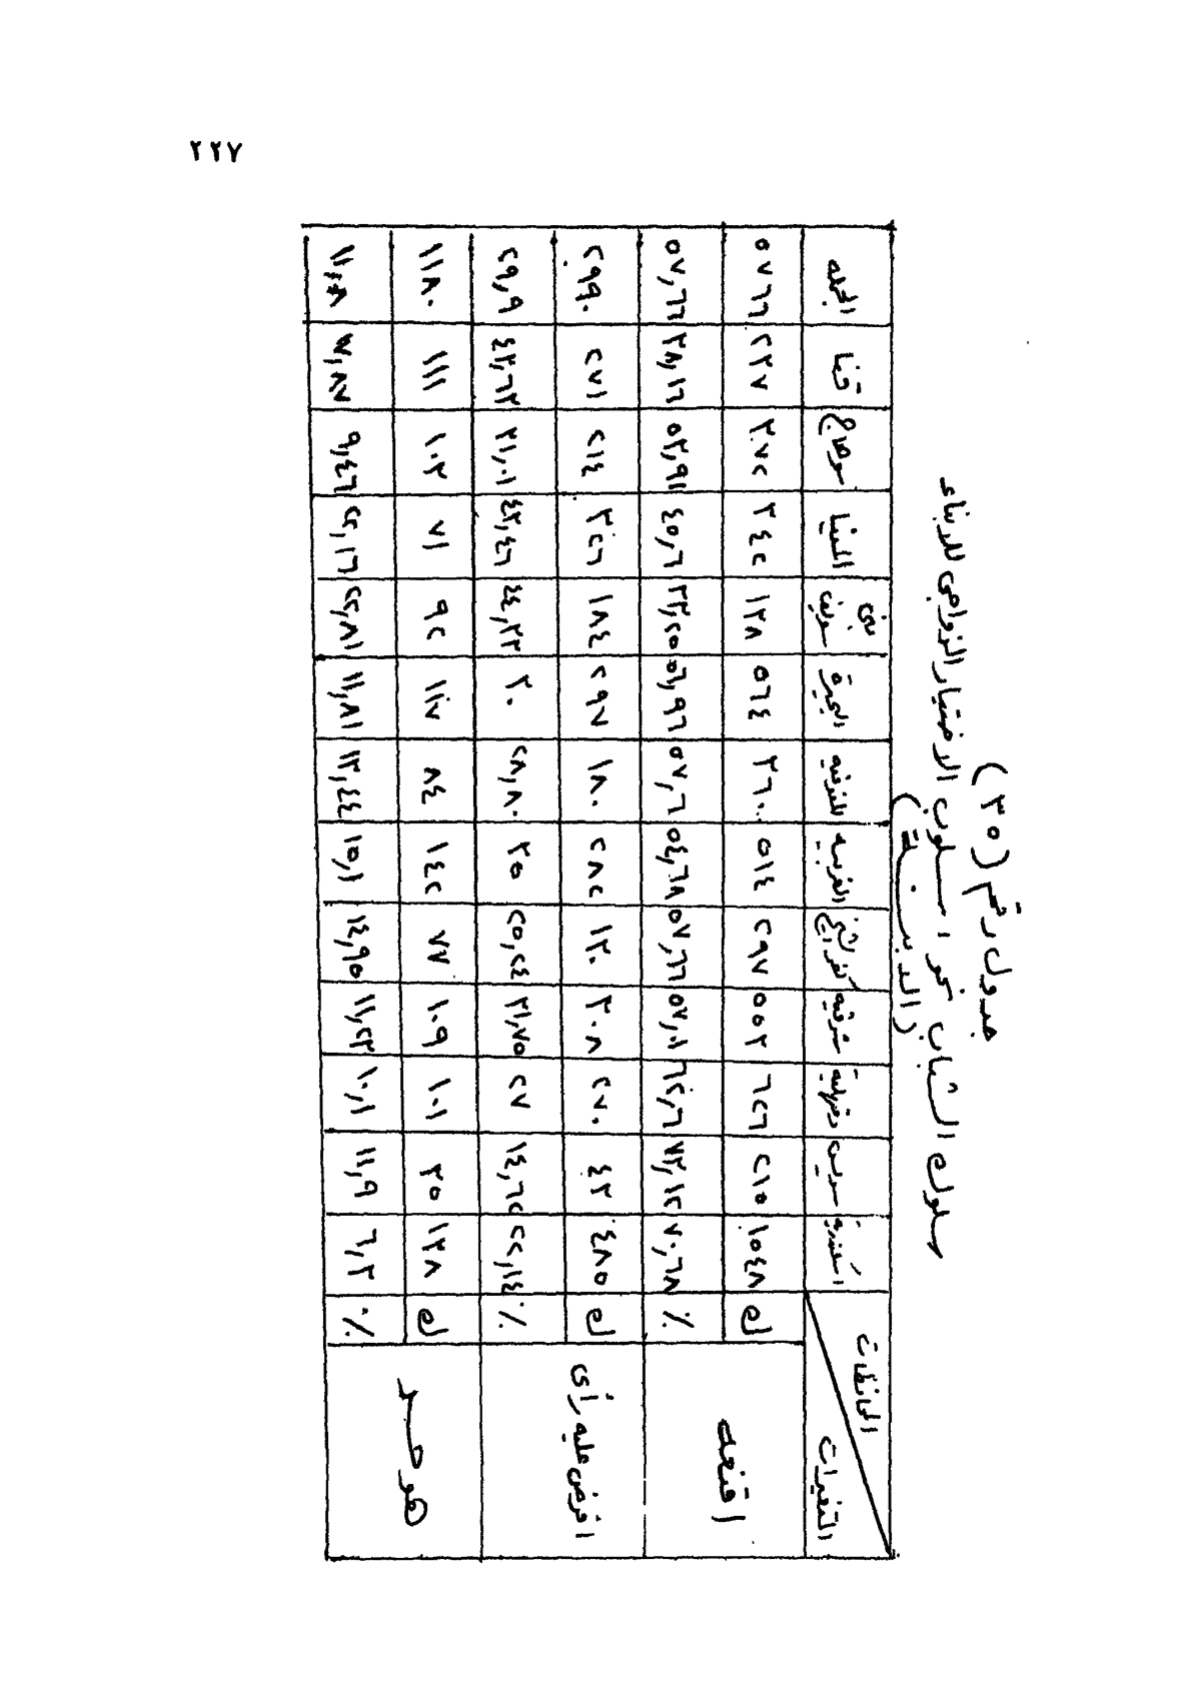 ٢٢٧
جدول رقم (٣٥)
سلوك الشباب نحو اسلوب الاختيار الزواجى للابناء
المحافظات | اسكندرية | سويس | دقهلية | شرقيه | كفر الشيخ | الغربيه | المنوفيه | البحيرة | بنى سويف | المنيا | سوهاج | قنا | الجمله
المتغيرات
اقنعه | ك | ١٥٤٨ | ٢١٥ | ٦٢٦ | ٥٥٣ | ٢٩٧ | ٥١٤ | ٣٦٠ | ٥٦٤ | ١٣٨ | ٣٤٢ | ٣٧٢ | ٢٣٧ | ٥٧٦٦
% | ٧٠,٦٨ | ٧٣,١٢ | ٦٢,٦ | ٥٧,٠١ | ٥٧,٦٦ | ٥٤,٦٨ | ٥٧,٦ | ٥٦,٩٦ | ٣٣,٢٥ | ٤٥,٦ | ٥٣,٩١ | ٣٨,١٦ | ٥٧,٦٦
افرض عليه رأى | ك | ٤٨٥ | ٤٣ | ٢٧٠ | ٣٠٨ | ١٣٠ | ٢٨٢ | ١٨٠ | ٢٩٧ | ١٨٤ | ٣٢٦ | ٢١٤ | ٢٧١ | ٢٩٩٠
% | ٢٢,١٤ | ١٤,٦٢ | ٢٧ | ٣١,٧٥ | ٢٥,٢٤ | ٣٠ | ٢٨,٨٠ | ٣٠ | ٤٤,٣٣ | ٤٣,٤٦ | ٣١,٠١ | ٤٣,٦٣ | ٢٩,٩
هو حر | ك | ١٣٨ | ٣٥ | ١٠١ | ١٠٩ | ٧٧ | ١٤٢ | ٨٤ | ١١٧ | ٩٢ | ٧١ | ١٠٣ | ١١١ | ١١٨٠
% | ٦,٣ | ١١,٩ | ١٠,١ | ١١,٢٣ | ١٤,٩٥ | ١٥,١ | ١٣,٤٤ | ١١,٨١ | ٢٢,٨١ | ٢٢,١٦ | ٩,٤٦ | ٧,٨٧ | ١١,٨